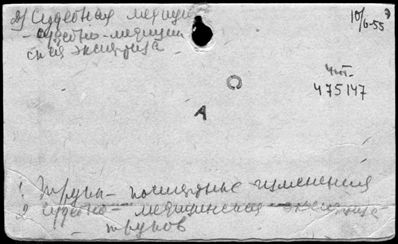 2) Судебная медици
- судебно-медицин
ская экспертиза
10/6-55 э
Чит.
475147
А
1. Трупы - посмертные изменения
2. Судебно - медицинская экспертиза
- трупов